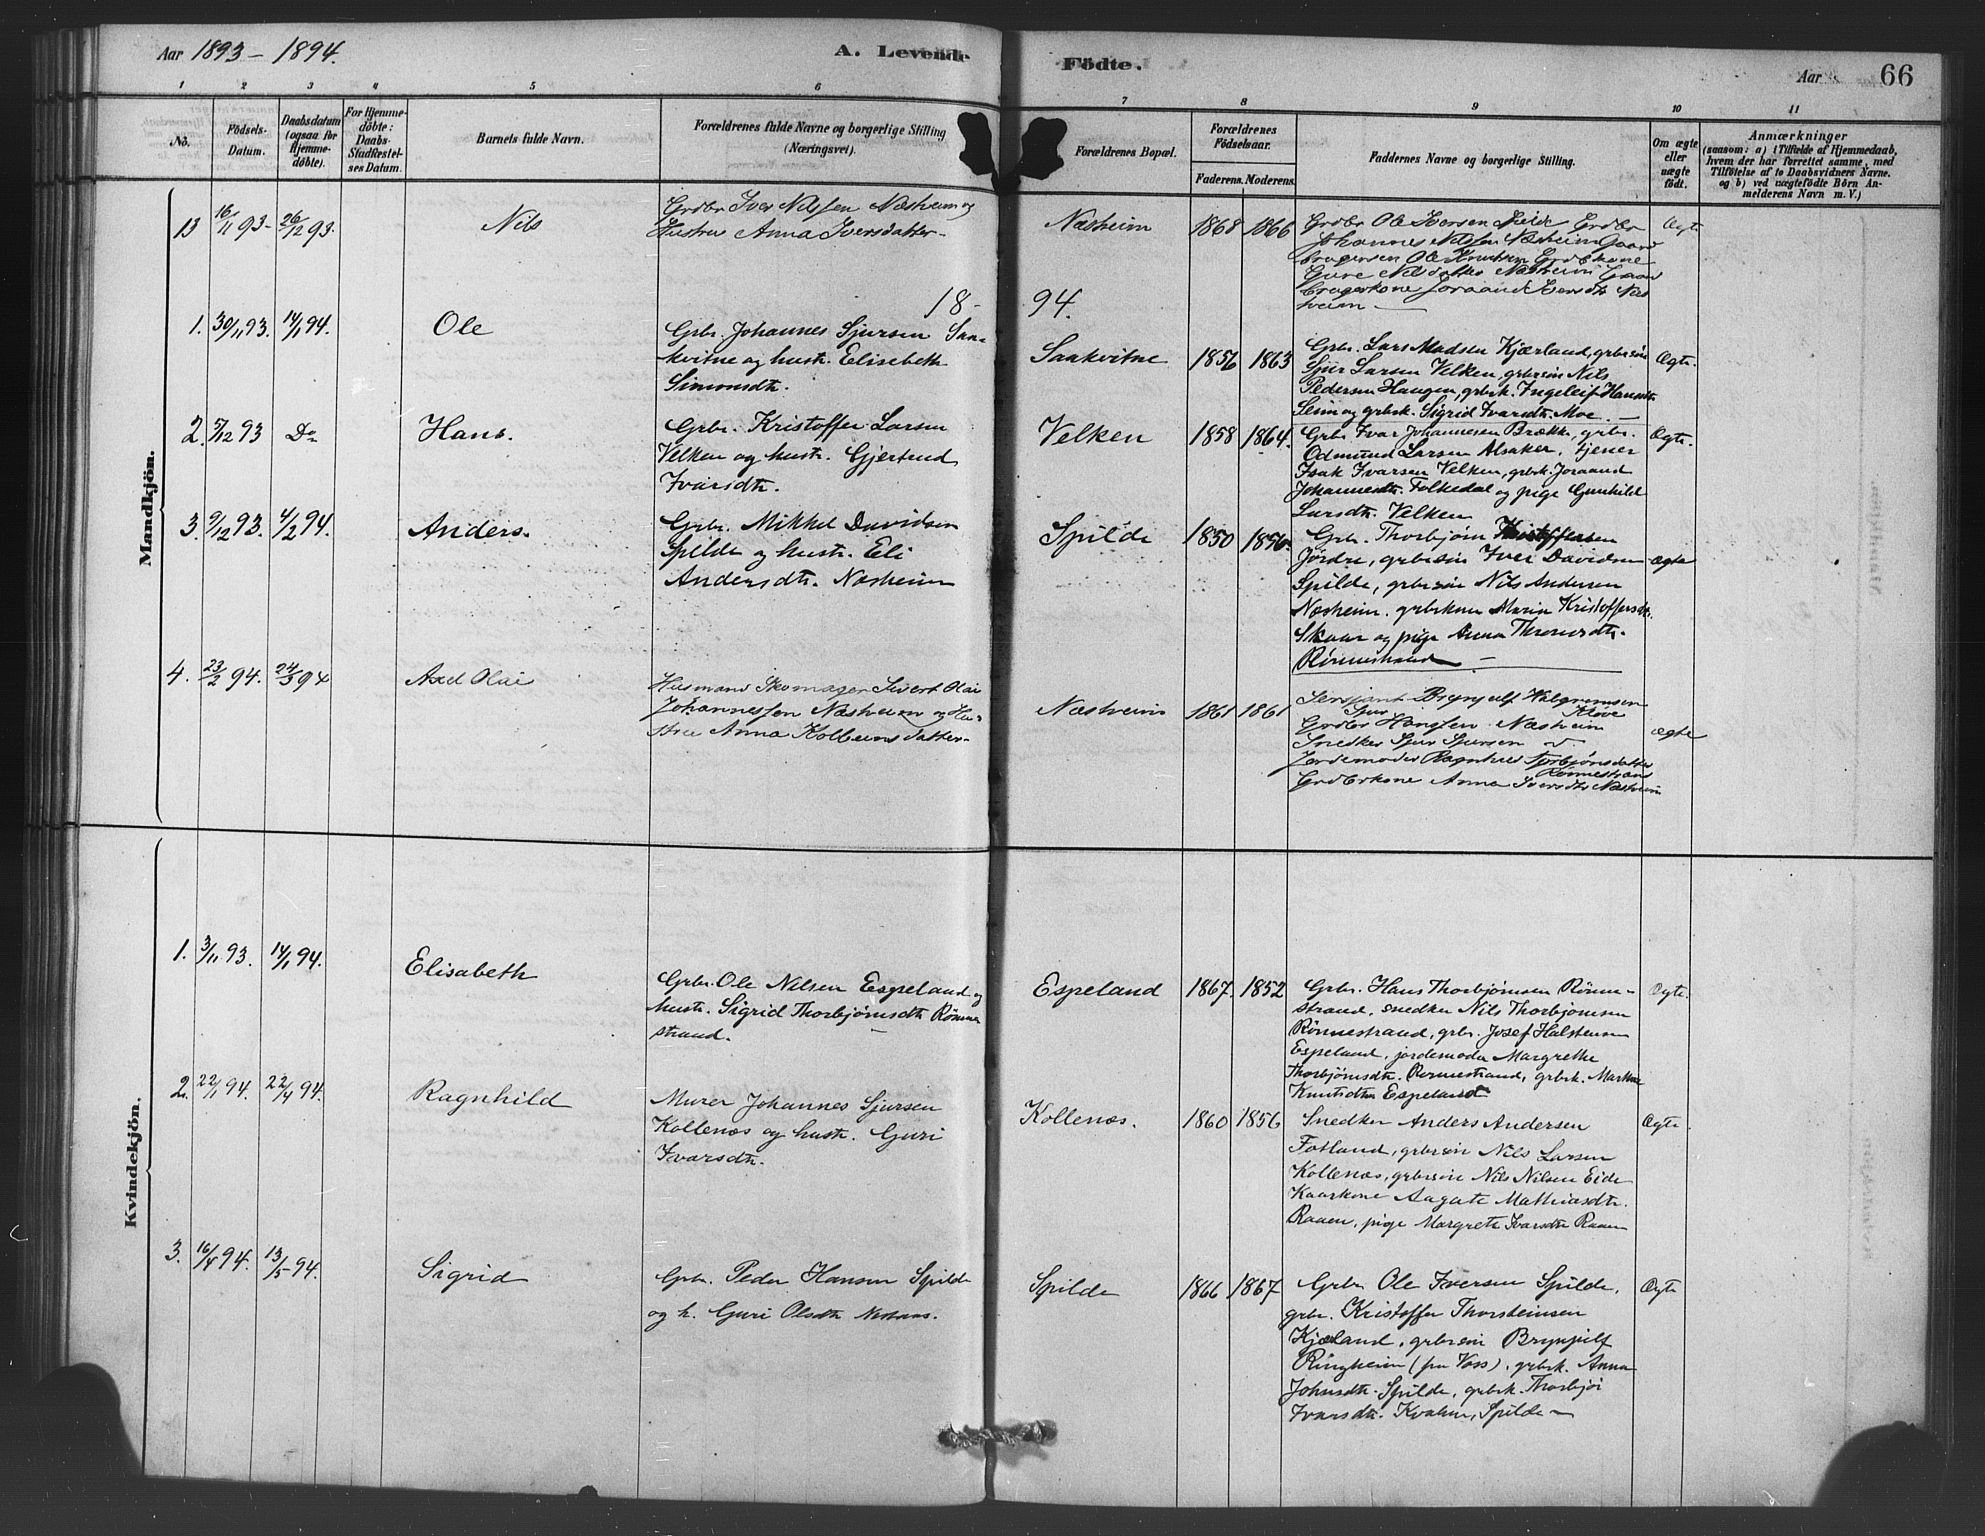 Aar 1893 - 1894.
A. Levende Födte.
Aar
66
1 2 3 4 5 6 7 8 9 10 11
No.
Födsels-
Datum.
Daabsdatum
(ogsaa for
Hjemme-
döbte).
For Hjemme-
döbte:
Daabs-
Stadfæstel-
ses Datum.
Barnets fulde Navn.
Forældrenes fulde Navne og borgerlige Stilling
(Næringsvei).
Forældrenes Bopæl.
Forældrenes
Födselsaar.
Faderens. Moderens.
Faddernes Navne og borgerlige Stilling.
Om ægte
eller
uægte
födt.
Anmærkninger
(saasom: a) i Tilfælde af Hjemmedaab,
hvem der har forrettet samme, med
Tilföielse af to Daabsvidners Navne.
og b) ved uægtefödte Börn An-
melderens Navn m. V.)
Mandkjön.
13 16/11 93- 26/12 93.
Nils
Grdbr Iver Nilssen Næsheim og
Hustru Anna Iversdatter-
Næsheim
1868 1866
Grdbr Ole Iversen Spilde Grdbr
Johannes Nilssen Næsheim Gaard
brugersøn Ole Knutsen Grdbkone
Gure Nilsdatter Næsheim Gaard
brugerkone Joraand Iversdtr Næs
heim —
Ægte
18- 94.
1. 30/11 93. 14/1 94.
Ole
Grbr. Johannes Sjursen Saa-
kvitne og hustr. Elisebeth
Simonsdtr.
Saakvitne
1856 1863
Grbr. Lars Madsen Kjærland, grbrsøn
Sjur Larsen Velken, grbrsøn Nils
Pedersen Haugen, grbrk. Ingeleif Hansdtr.
Seim og grbrk. Sigrid Ivarsdtr. Moe. —
Ægte.
2. 5/12 93 Do
Hans.
Grbr. Kristoffer Larsen
Velken og hustr. Gjertrud
Ivarsdtr.
Velken
1858 1864.
Grbr. Ivar Johannesen Brække, grbr.
Odmund Larsen Alsaker, tjener
Isak Ivarsen Velken, grbrk. Joraand
Johannesdtr. Folkedal og pige Gunhild
Larsdtr. Velken
Ægte.
3. 9/12 93. 4/2 94.
Anders.
Grbr. Mikkel Davidsen
Spilde og hustr. Eli
Andersdtr. Næsheim
Spilde
1850 1856.
Grbr. Thorbjørn Kristoffersen
Jørdre, grbrsøn Iver Davidsen
Spilde, grbrsøn Nils Andersen
Næsheim. grbrkone Maria Kristoffersdtr.
Skaar og pige Anna Thronsdtr.
Rönnestrand —
ægte
4. 23/2 94. 24/3 94
Axel Olai
Husmand Skomager Sivert Olai
Johannessen Næsheim og Hu-
stru Anna Kolbensdatter-
Næsheim
1861 1861
Sersjant Brynjulf Valgrimsen
Kløve
Grdbr Sjur Hanssen. Næsheim
Snedker Sjur Sjursen
Jordemoder Ragnhild Torbjønsdatter
Rönnestrand
Grdbrkone Anna Iversdtr Næsheim
ægte
Kvindekjön.
1. 3/11 93. 14/1 94.
Elisabeth
Grbr. Ole Nilsen Espeland og
hustr. Sigrid Thorbjørnsdtr Rönne
strand.
Espeland
1867. 1852
Grbr. Hans Thorbjørnsen Rönne-
strand, snedker Nils Thorbjørnsen
Rönnestrand, grbr. Josef Halsteinsen
Espeland, jordemoder Margrethe
Thorbjørnsdtr. Rønnestrand, grbrk. Martha
Knutsdtr Espeland
Ægte.
2. 22/1 94. 22/4 94.
Ragnhild
Murer Johannes Sjursen
Kollenæs og hustr. Guri
Ivarsdtr.
Kollenæs.
1860 1856
Snedker Anders Andersen
Fotland, grbrsøn Nils Larsen
Kollenæs, grbrsøn Nils Nilsen Eide
Kaarkone Aagate Mathiasdtr.
Raaen, pige Margrete Ivarsdtr Raaen
Ægte.
3. 16/4 94. 13/5 94.
Sigrid
Grbr. Peder Hansen Spilde
og h. Guri Olsdtr
Spilde
1866 1867
Grbr Ole Iversen Spilde,
grbr. Kristoffer Thorsteinsen
Kjærland, grbrsøn Brynjulf
Ringheim (fra Voss), grbrk. Anna
Johnsdtr. Spilde, grbrk. Thorbjør
Ivarsdtr. Kvalen, Spilde —
Ægte